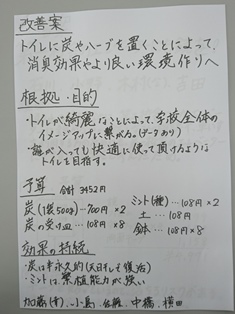 改善案
トイレに炭やハーブを置くことによって、
消臭効果やより良い環境作りへ
根拠・目的
・トイレが綺麗なことによって、学校全体の
イメージアップに繋がる。(データあり)
・誰が入っても快適に使って頂けるような
トイレを目指す。
予算 合計 3452円
炭(1袋500g)…700円×2
炭の受け皿…108円×8
ミント(種)…108円×2
土…108円
鉢…108円×8
効果の持続
・炭は半永久的(天日干しで復活)
・ミントは繁殖能力が強い
加藤(有)・小島・佐藤・中橋・横田